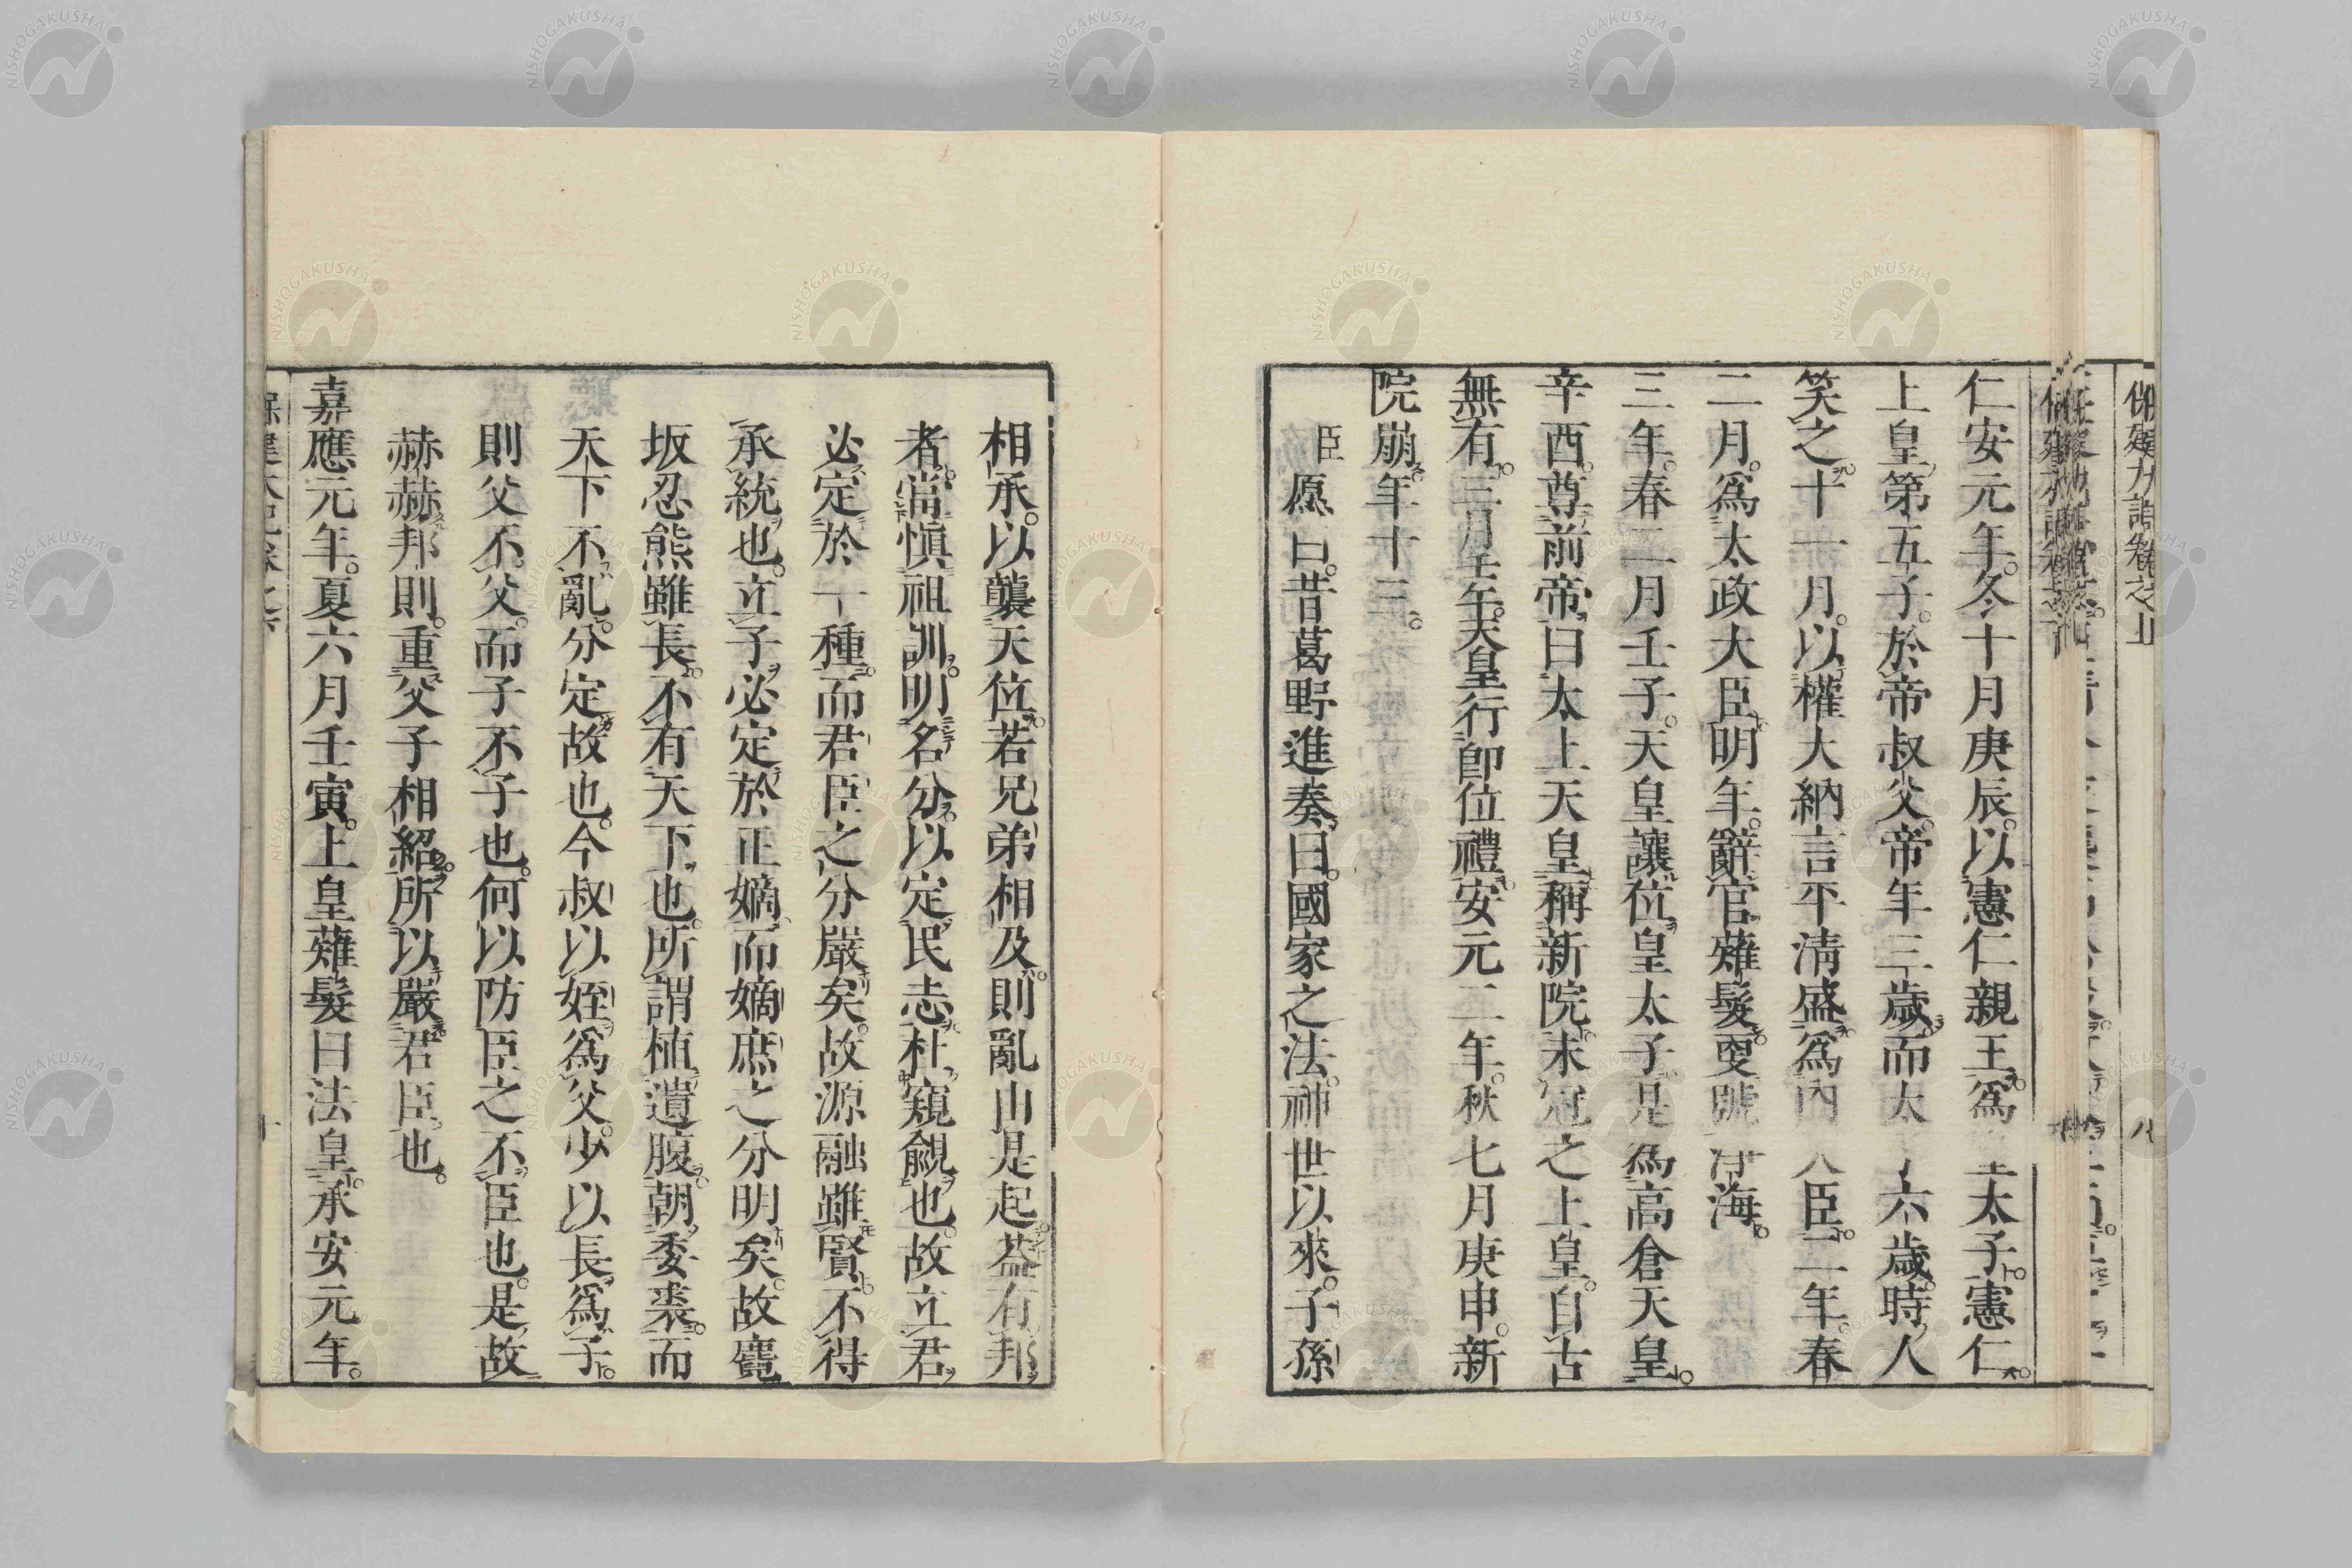 仁安元年。冬十月庚辰。以憲仁親王爲皇太子。憲仁。
上皇第五子。於帝叔父。帝年三歳。而太子六歳。時人
笑之。十一月。以權大納言平淸盛爲內大臣。二年。春
二月。爲太政大臣。明年。辭官薙髮。更號淨海。
三年。春二月壬子。天皇讓位。皇太子。是爲高倉天皇。
辛酉。尊前帝。曰太上天皇。稱新院。未冠之上皇。自古
無有。三月壬午。天皇行卽位禮。安元二年。秋七月庚申。新
院崩。年十三。
臣愿曰。昔葛野進奏曰。國家之法。神世以來。子孫
相承。以襲天位。若兄弟相及。則亂由是起。蓋有邦
者。當愼祖訓。明名分。以定民志。杜窺覦也。故立君
必定於一種。而君臣之分嚴矣。故源融雖賢。不得
承統也。立子必定於正嫡。而嫡庶之分明矣。故麑
坂忍熊雖長。不有天下也。所謂植遺腹。朝委裘。而
天下不亂。分定故也。今叔以姪爲父。少以長爲子。
則父不父。而子不子也。何以防臣之不臣也。是故
赫赫邦則。重父子相紹。所以嚴君臣也。
嘉應元年。夏六月壬寅。上皇薙髮曰法皇。承安元年。